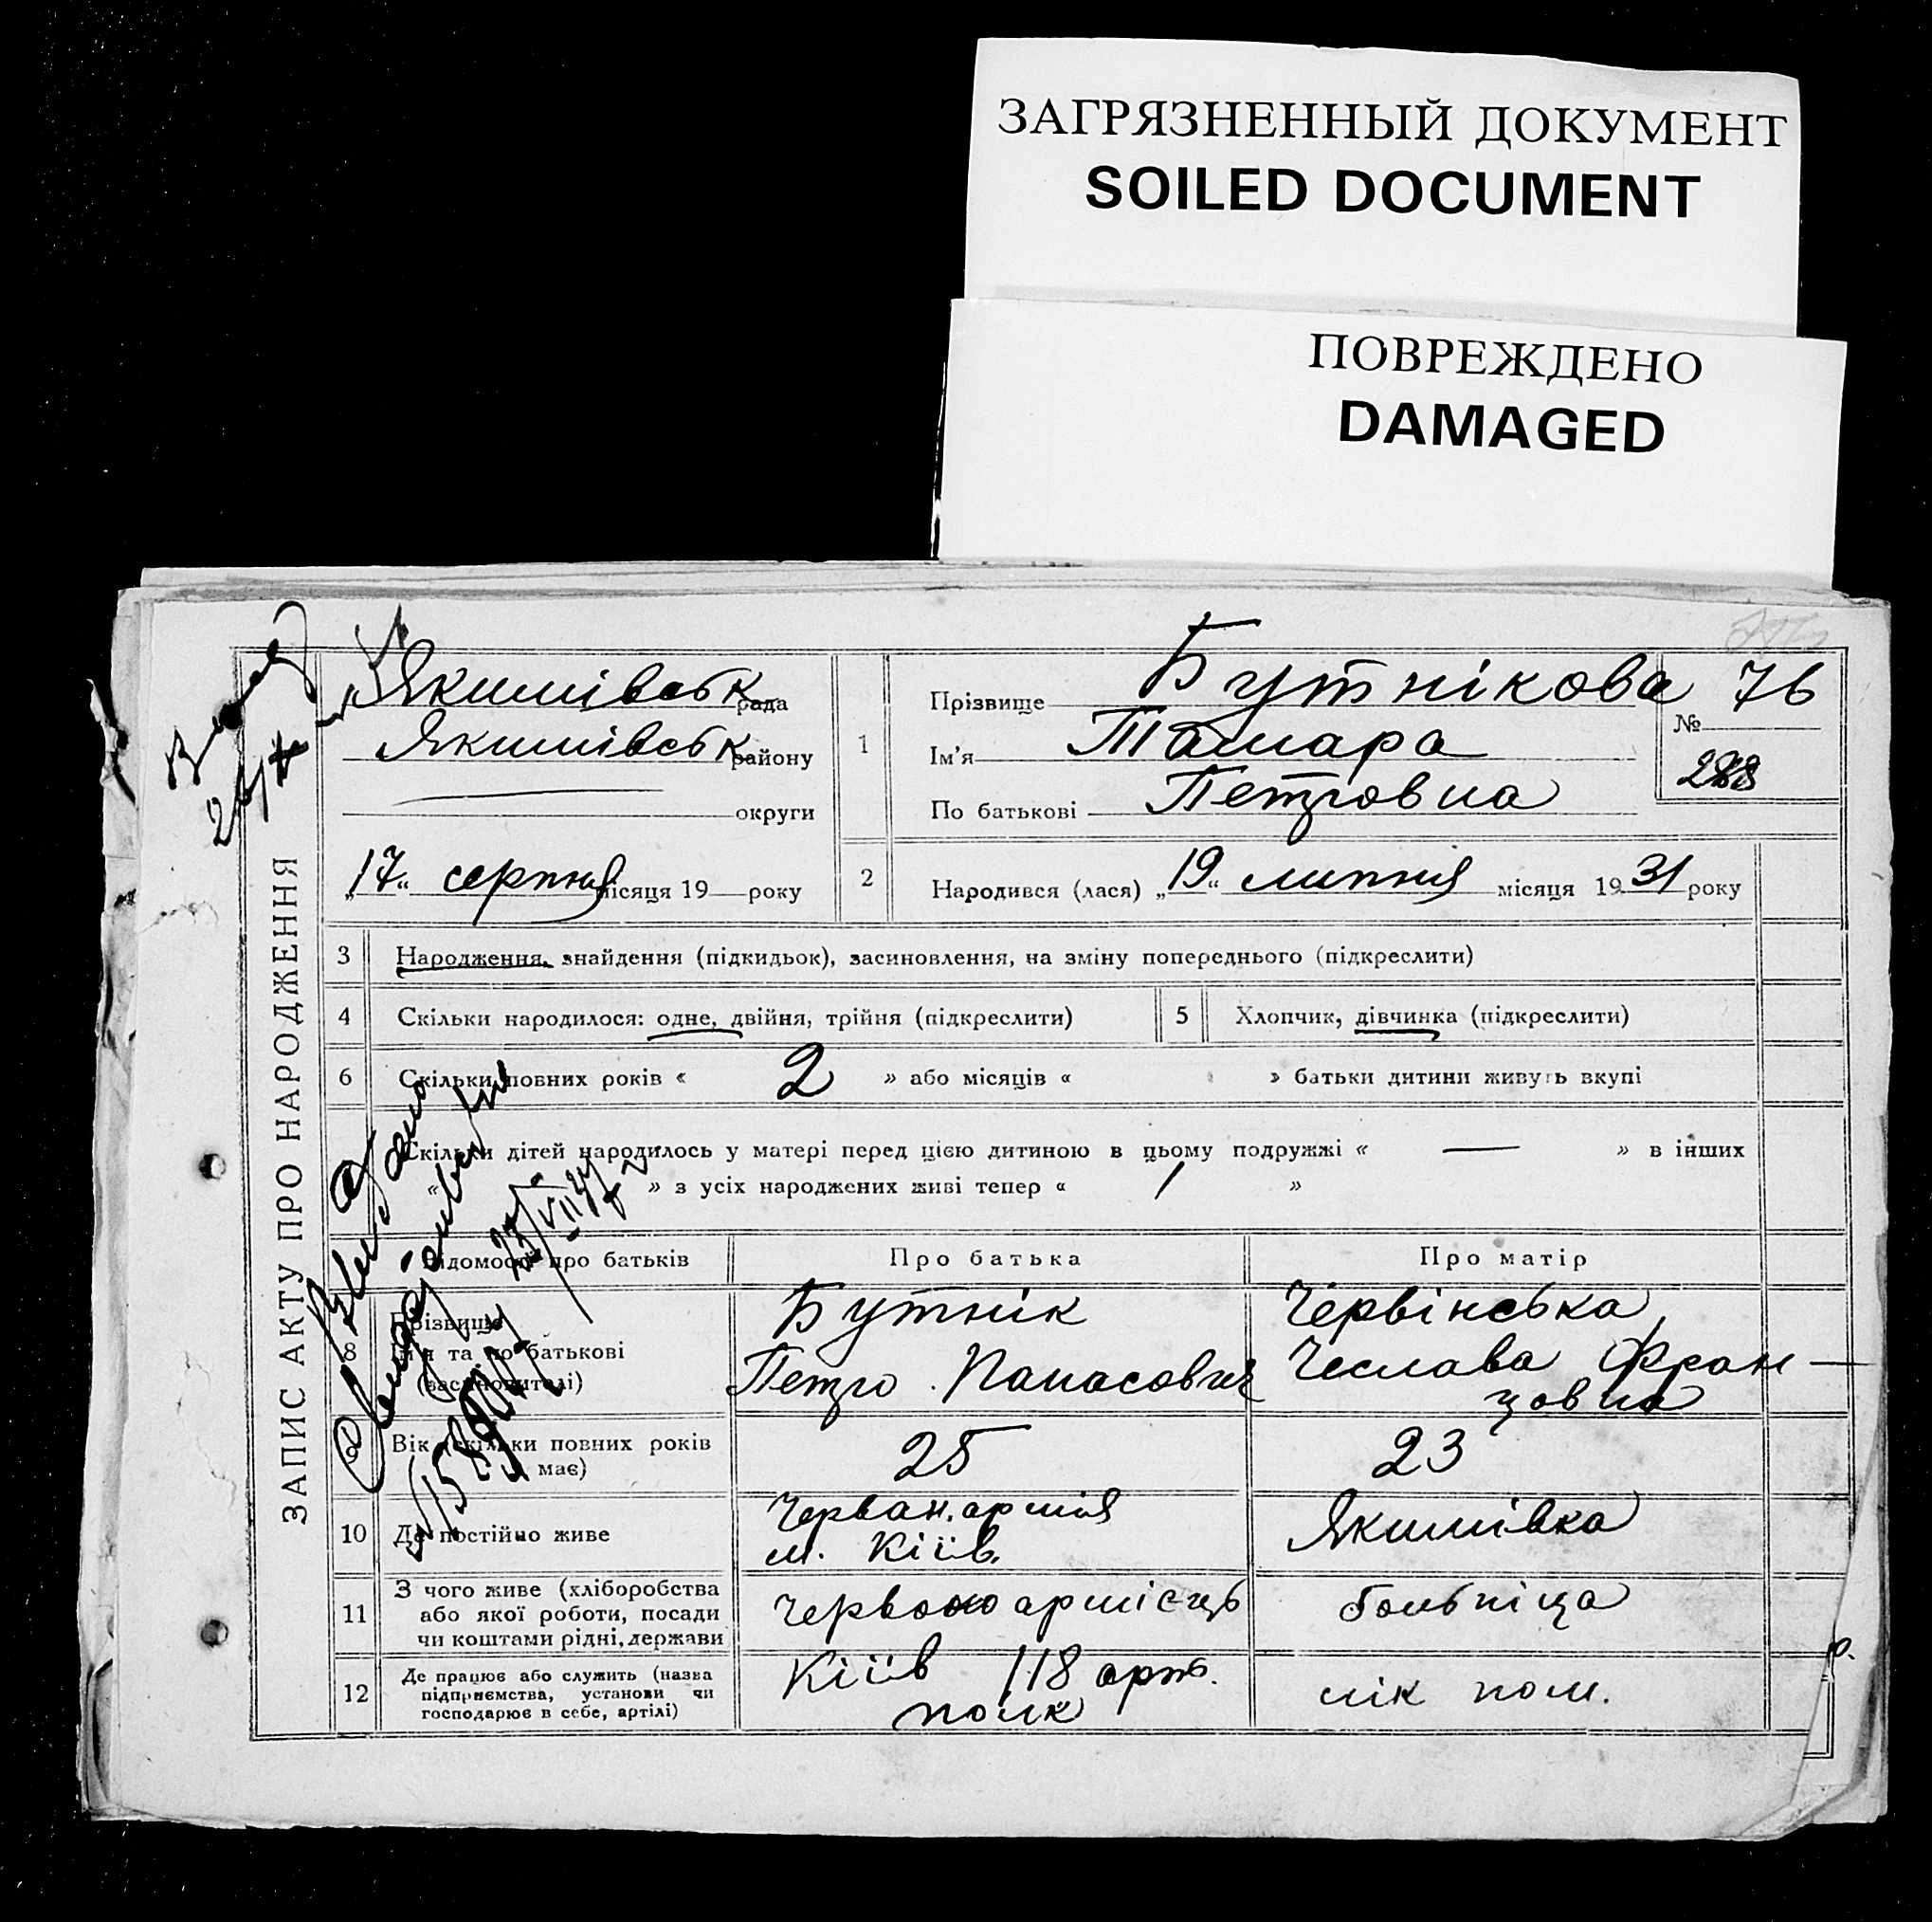 ЗАГРЯЗНЕННЫЙ ДОКУМЕНТ
SOILED DOCUMENT
ПОВРЕЖДЕНО
DAMAGED
ЗАПИС АКТУ ПРО НАРОДЖЕННЯ
Якимівськ рада
Якимівськ району
округи
„17“ серпня місяця 19 року
1
Прізвище Бутнікова
Ім'я Тамара
По батькові Петровна
76
№
288
2 Народився (лася) „19“ липня місяця 1931 року
3 Народження, знайдення (підкидьок), засиновлення, на зміну попереднього (підкреслити)
4 Скільки народилося: одне, двійня, трійня (підкреслити) 5 Хлопчик, дівчинка (підкреслити)
6 Скільки повних років « 2 » або місяців « » батьки дитини живуть вкупі
Скільки дітей народилось у матері перед цією дитиною в цьому подружжі « — » в інших
« » з усіх народжених живі тепер « 1 »
Відомості про батьків Про батька Про матір
8 Прізвище Бутнік Червінська
Ім'я та по батькові Петро Панасович Чеслава Фран-
(засиновителі) цовна
Вік (скільки повних років 25 23
має)
10 Де постійно живе Черван. армія Якимівка
м. Кіїв.
11 З чого живе (хліборобства або якої роботи, посади чи коштами рідні, держави Червоно армієць больніца
12 Де працює або служить (назва підприємства, установи чи господарює в себе, артілі) Кіїв 118 арт. лік пом.
полк
Видано
23/VII 47